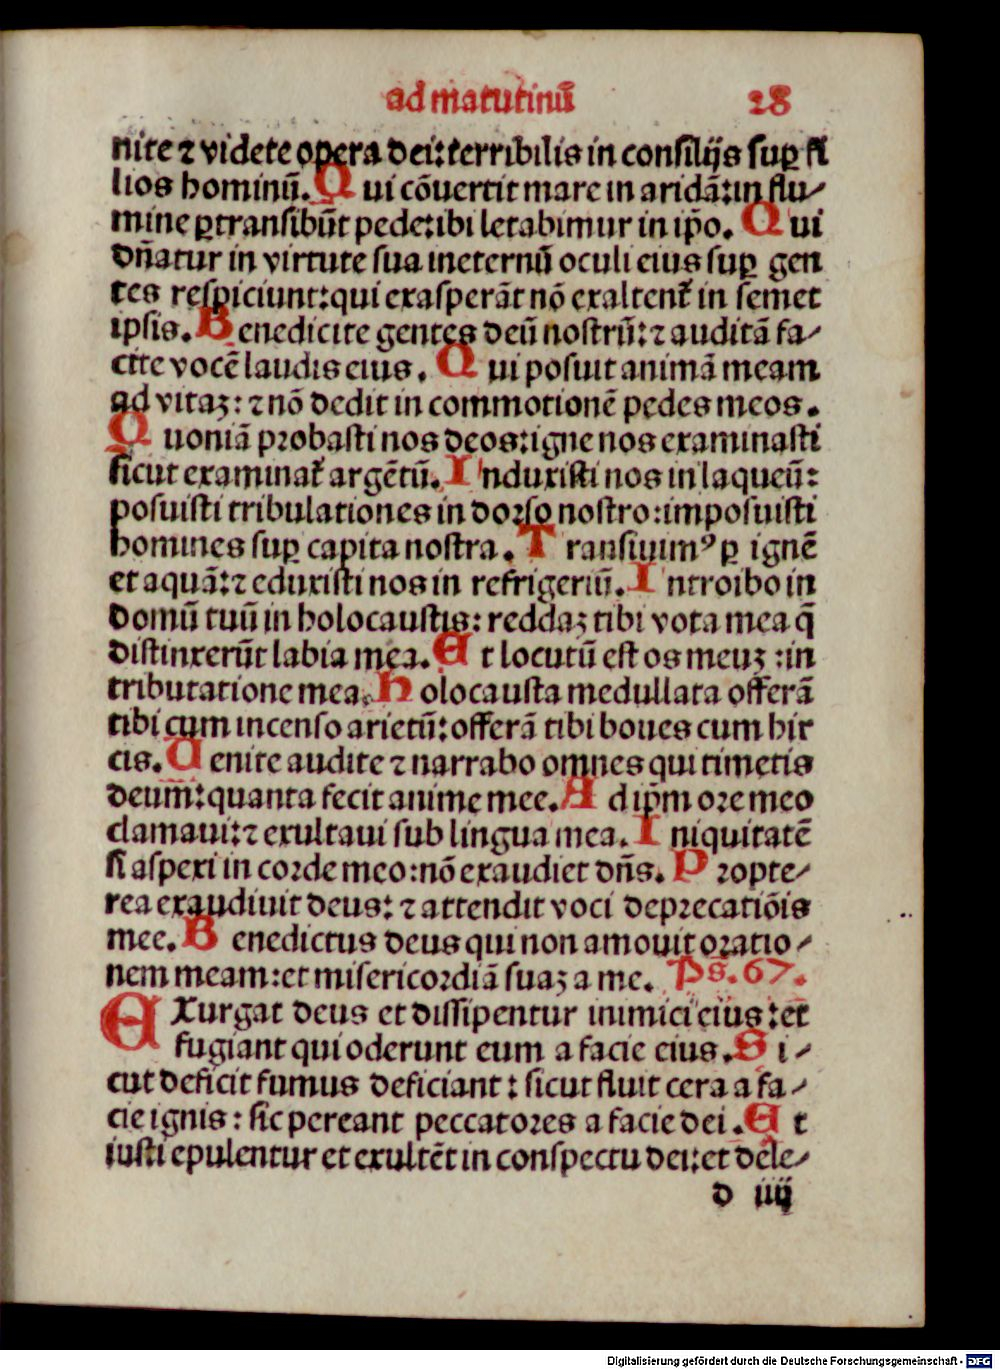 ad matutinū 28
nite ⁊ videte opera dei:terribilis in consilijs suꝑ fi
lios hominū. Q ui cōuertit mare in aridā:in flu-
mine ꝑtransibūt pede:ibi letabimur in ip̄o. Q ui
dn̄atur in virtute sua ineternū oculi eius suꝑ gen
tes respiciunt:qui exasperāt nō exaltent᷑ in semet
ipsis. B enedicite gentes deū nostrū:⁊ auditā fa-
cite vocē laudis eius. Q ui posuit animā meam
ad vitaꝫ: ⁊ nō dedit in commotionē pedes meos.
Q uoniā probasti nos deos:igne nos examinasti
sicut examinat᷑ argētū. I nduxisti nos in laqueū:
posuisti tribulationes in dorso nostro:imposuisti
homines suꝑ capita nostra. T ransiuimꝰ ꝑ ignē
et aquā:⁊ eduxisti nos in refrigeriū. I ntroibo in
domū tuū in holocaustis: reddaꝫ tibi vota mea q̄
distinxerūt labia mea. E t locutū est os meuꝫ :in
tributatione mea. H olocausta medullata offerā
tibi cum incenso arietū:offerā tibi boues cum hir
cis. U enite audite ⁊ narrabo omnes qui timetis
deum:quanta fecit anime mee. A d ip̄m ore meo
clamaui:⁊ exultaui sub lingua mea. I niquitatē
si aspexi in corde meo:nō exaudiet dn̄s. P ropte-
rea exaudiuit deus: ⁊ attendit voci deprecatiōis
mee. B enedictus deus qui non amouit oratio-
nem meam:et misericordiā suaꝫ a me. Ps̄. 67.
E Xurgat deus et dissipentur inimici eius:et
fugiant qui oderunt eum a facie eius. S i-
cut deficit fumus deficiant: sicut fluit cera a fa-
cie ignis: sic pereant peccatores a facie dei. E t
iusti epulentur et exultēt in conspectu dei:et dele-
d iiij
Digitalisierung gefördert durch die Deutsche Forschungsgemeinschaft - DFG